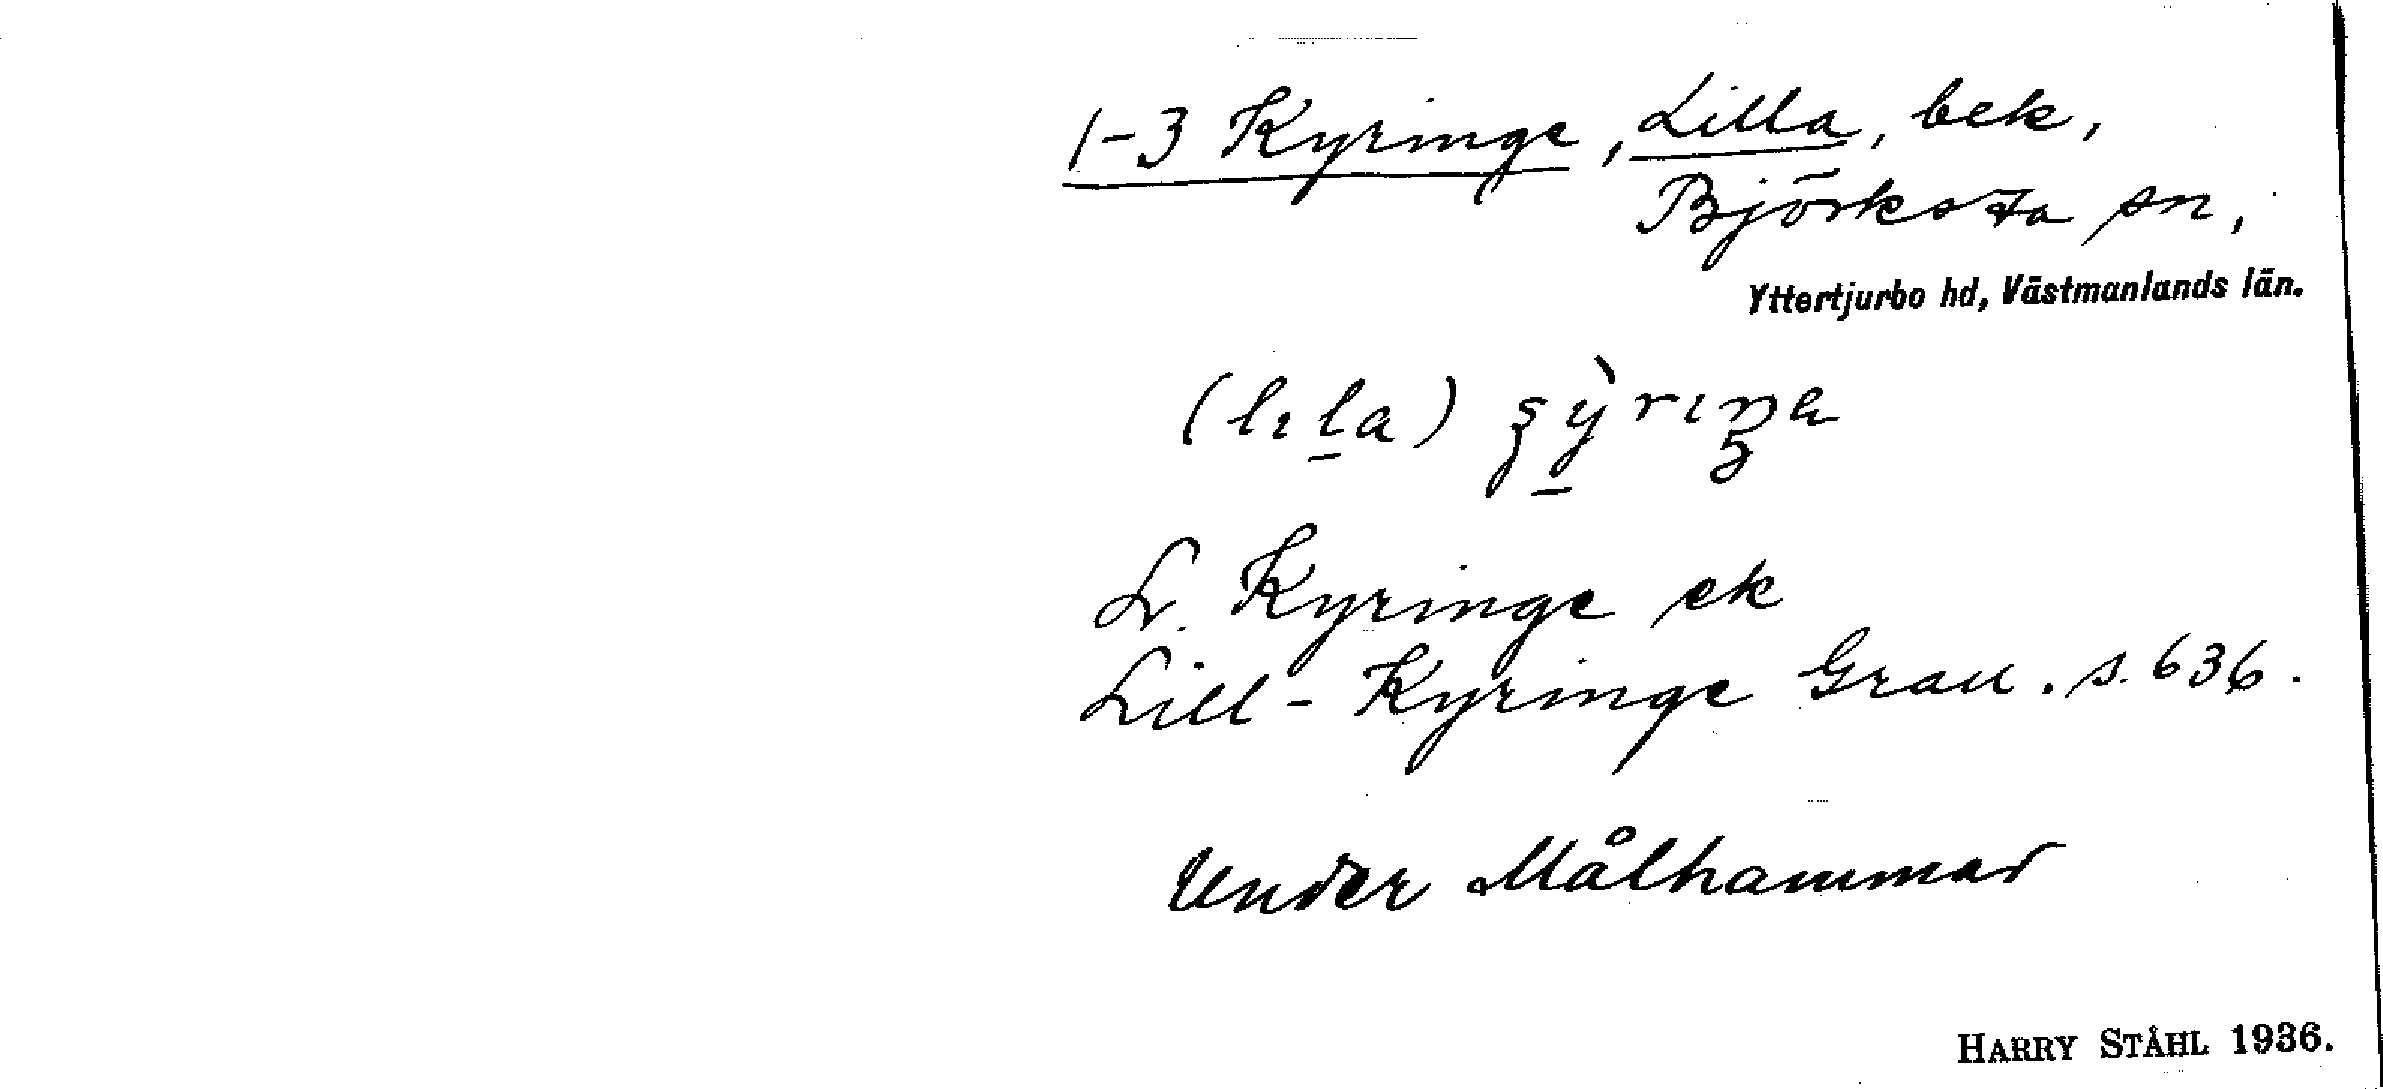 1-3 Kyringe, Lilla, bek,
Björksta sn,
Yttertjurbo hd, Västmanlands län.
(lɩla)
L. Kyringe ek
Lill-Kyringe Grau. s. 636.
Under Målhammar
HARRY STÅHL 1936.